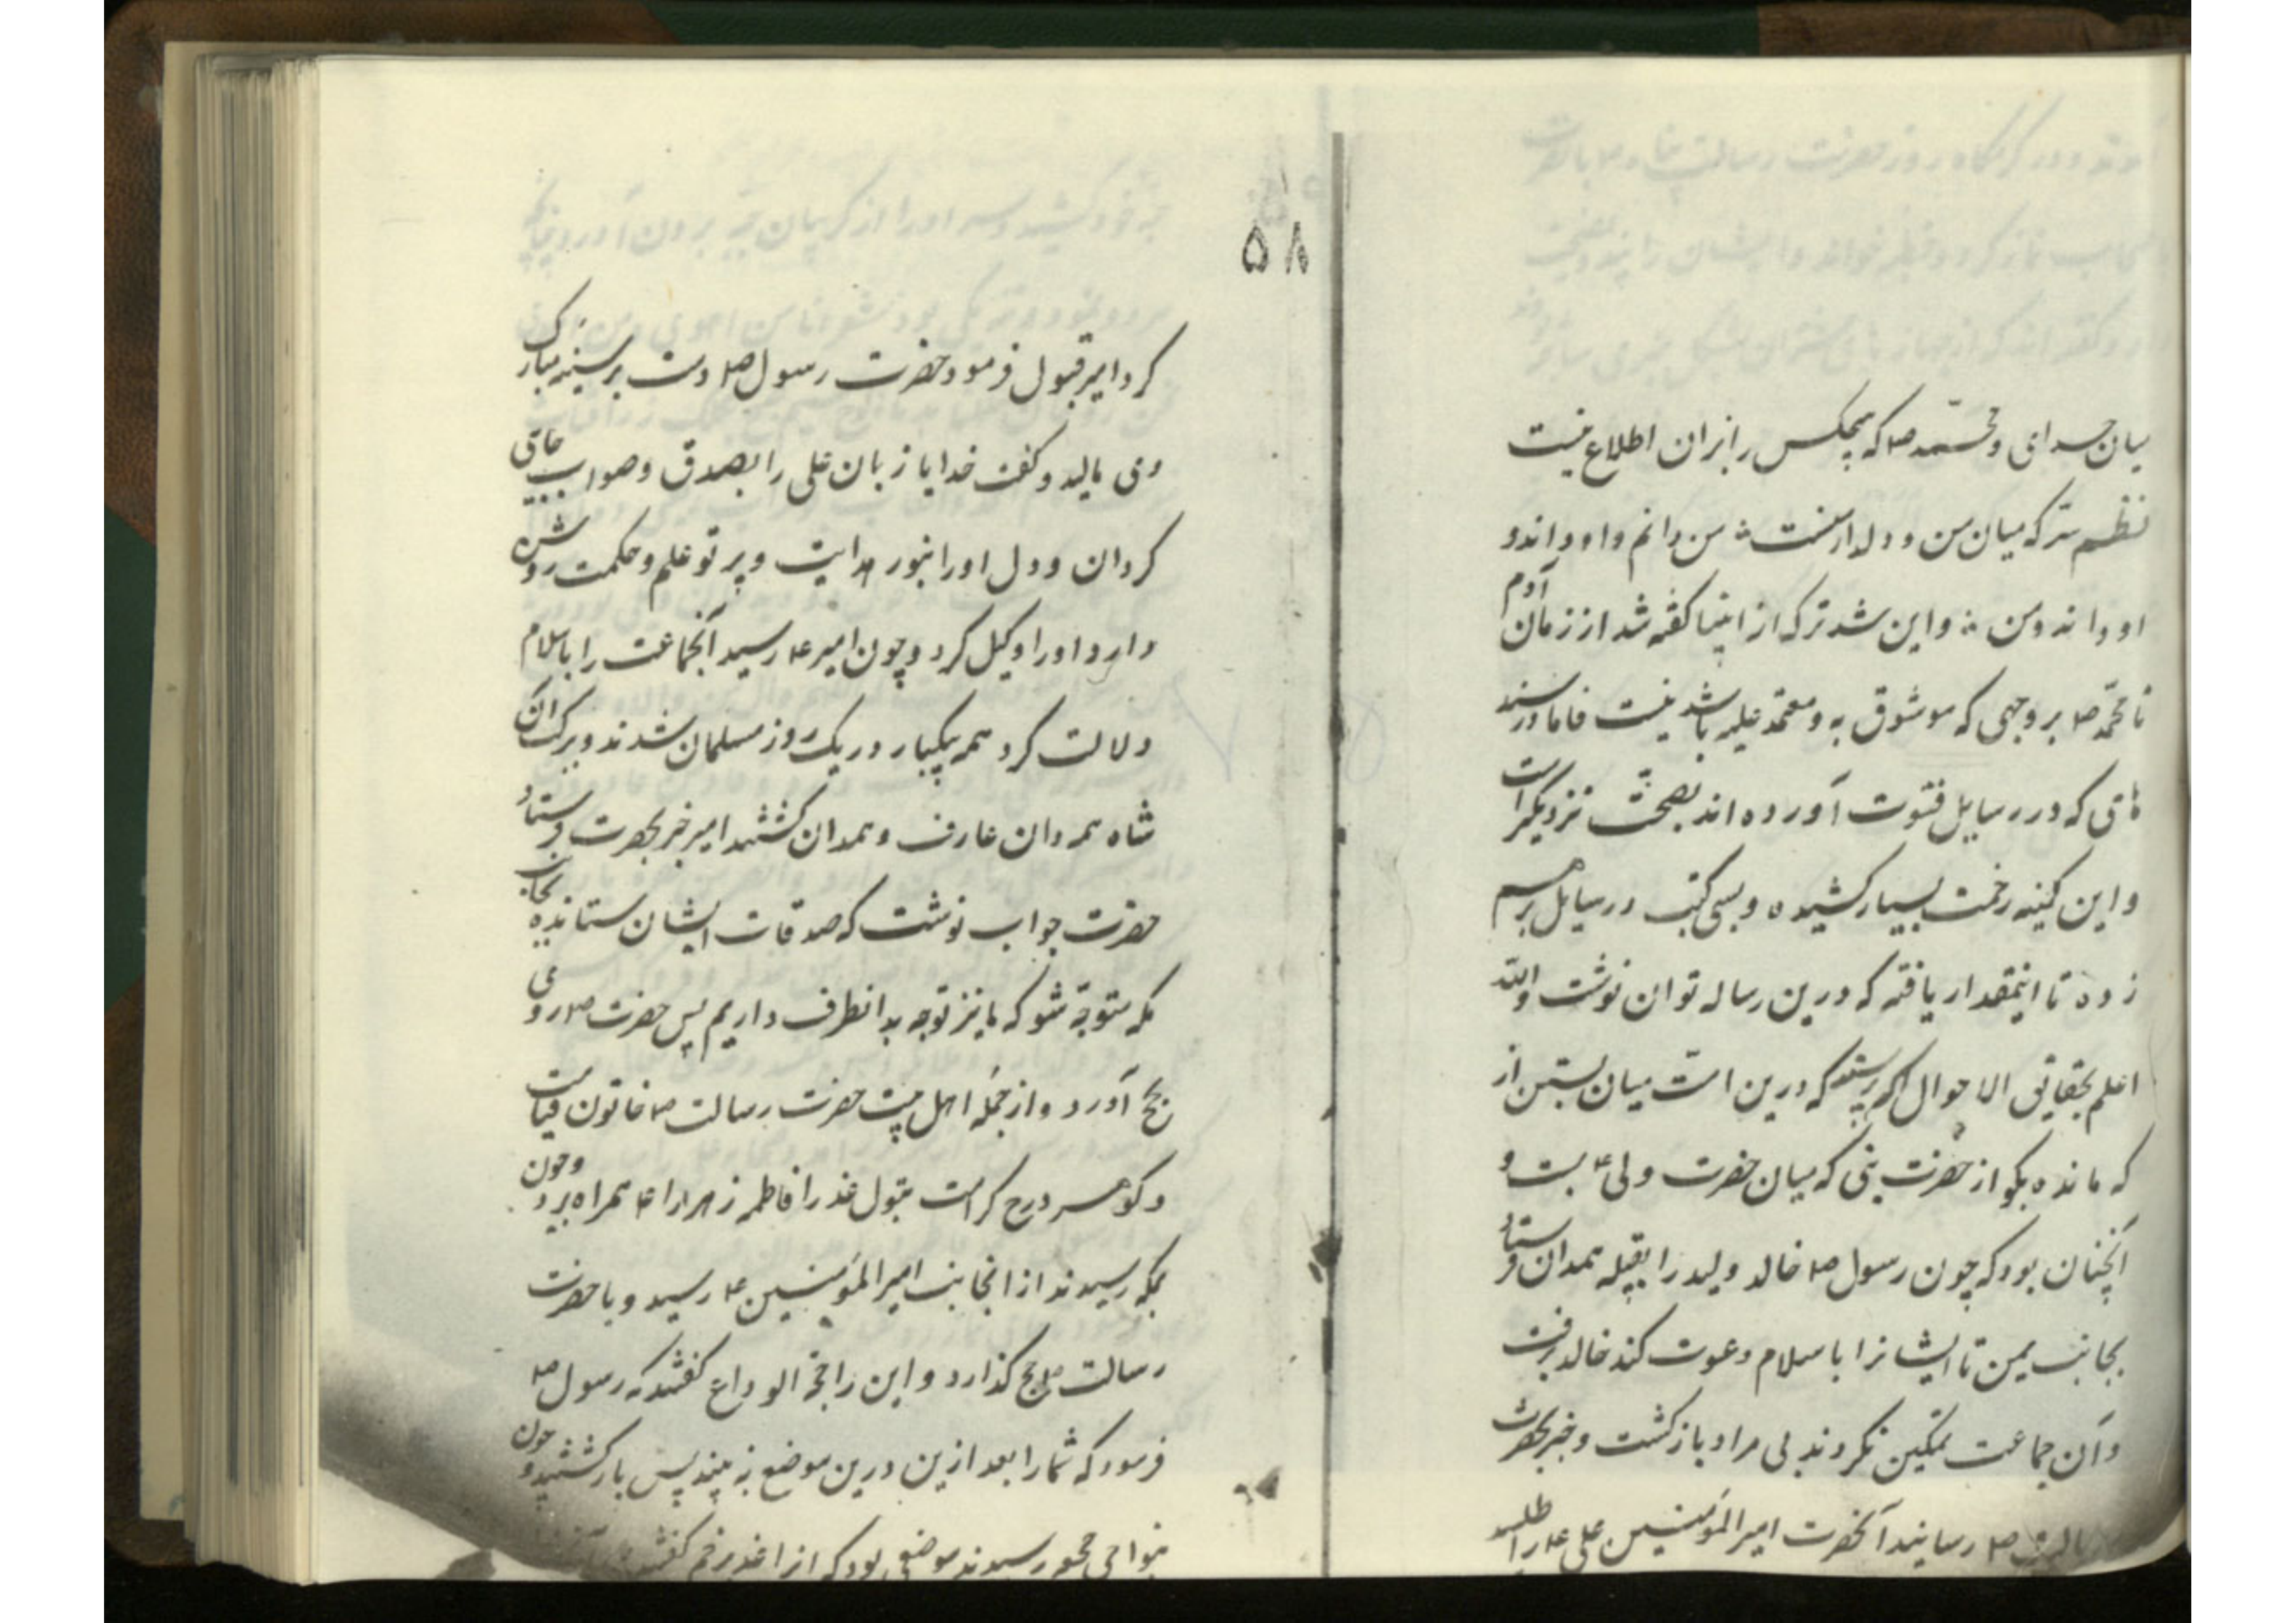 میان خدای و محمد ص که هیچکس را بران اطلاع نیست
نظم سرّ که میان من و دلدار منست من دانم و او داند و
او داند و من و این شد ترک از انبیا گفته شد از زمان آدم
تا محمد ص بر وجهی که موثوق به و معتمد علیه باشد نیست فاما در سند
هائی که در رسایل فتوت آورده اند بصحت نزدیکتر است
و این کمینه زحمت بسیار کشیده و بسی کتب و رسایل بر هم
زده تا اینمقدار یافته که درین رساله توان نوشت والله
اعلم بحقایق الاحوال اگر پرسند که درین امت میان بستن از
که مانده بگو از حضرت نبی که میان حضرت ولی ع بست و
آنچنان بود که چون رسول ص خالد ولید را بقبیله همدان فرستاد
بجانب یمن تا ایشانرا باسلام دعوت کند خالد برفت
و آن جماعت تمکین نکردند بی مراد بازگشت و خبر بحضرت
رسالت ص رسانید آنحضرت امیرالمؤمنین علی ع را طلب
۵۸
کرد امیر قبول فرمود حضرت رسول ص دست بر سینه مبارک
وی مالید و گفت خدایا زبان علی را بصدق و صواب جاری
گردان و دل او را بنور هدایت و پرتو علم و حکمت روشن
دار و او را وکیل کرد و چون امیر ع رسید آنجماعت را باسلام
دلالت کرد همه بیکبار در یک روز مسلمان شدند و ببرکت آن
شاه مردان عارف و همدان گشتند امیر خبر بحضرت فرستاد
حضرت جواب نوشت که صدقات ایشان ستانده بجانب
مکه متوجه شو که ما نیز توجه بدانطرف داریم پس حضرت ص روی
بحج آورد و از جمله اهل بیت حضرت رسالت ص خاتون قیامت
و گوهر درج کرامت بتول عذرا فاطمه زهرا را ع همراه برد و چون
بمکه رسیدند از انجانب امیرالمؤمنین ع رسید و با حضرت
رسالت ص حج گذارد و این را حجة الوداع گفتند که رسول ص
فرمود که شما را بعد ازین درین موضع نه بینید پس بازگشتند و چون
بنواحی جحفه رسیدند موضعی بود که انرا غدیر خم گفتندی